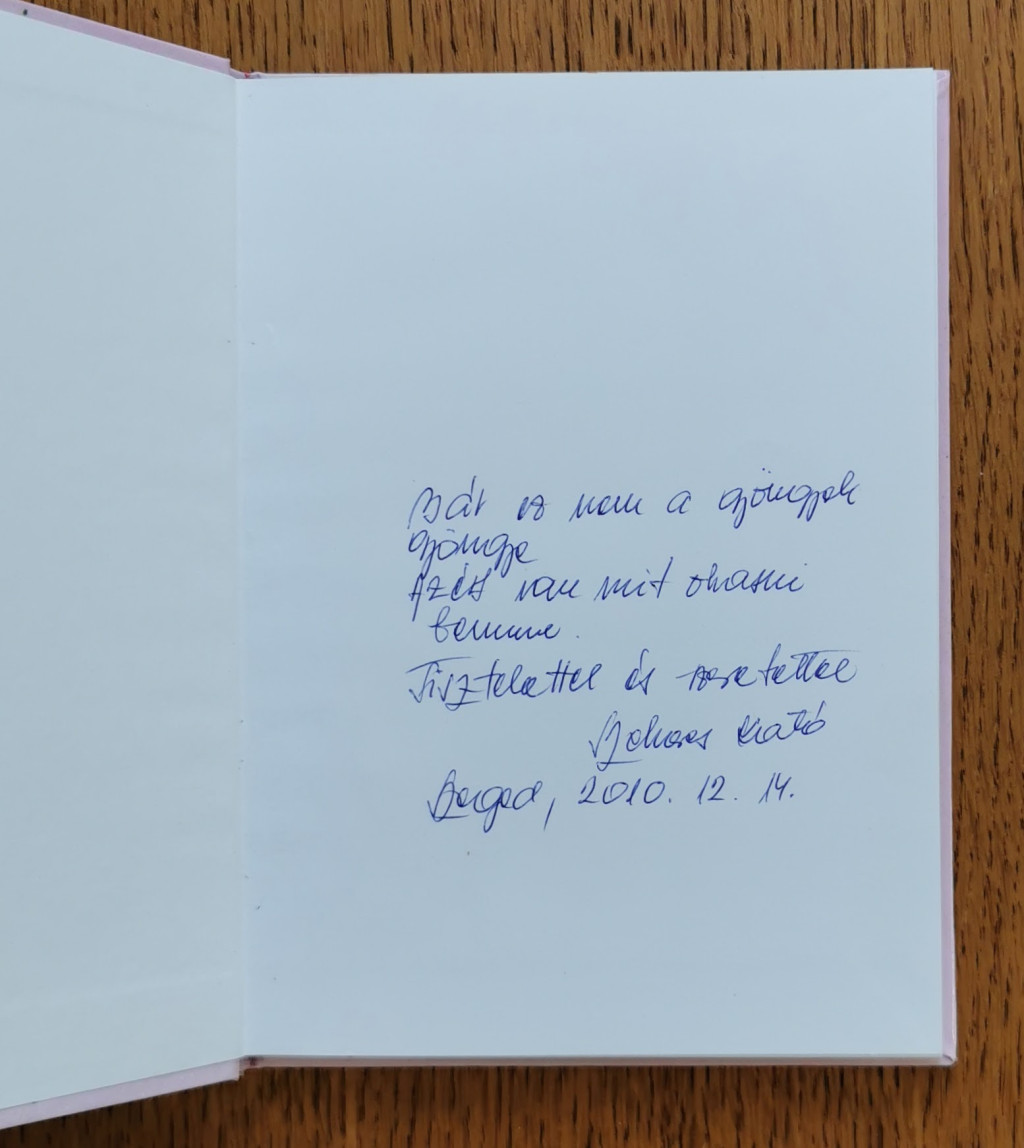 Bár ez nem a gyöngyök
gyöngye
Azért van mit olvasni
benne.
Tisztelettel és szeretettel
Kató
Szeged, 2010. 12. 14.